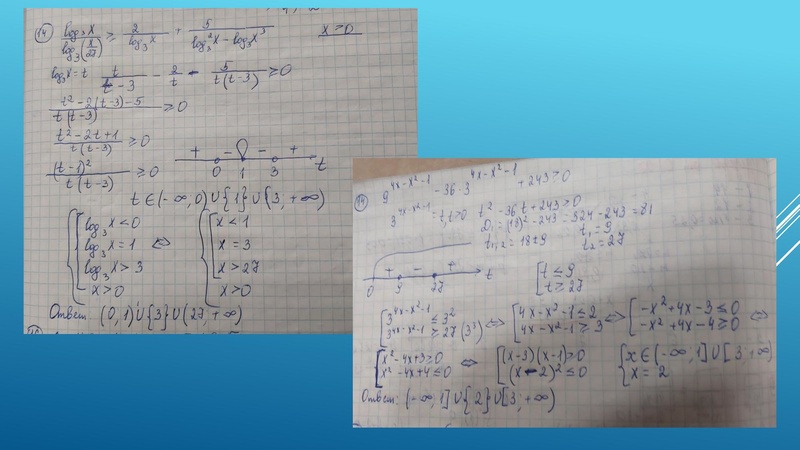 14 log₃x / log₃(x/27) ≥ 2 / log₃x + 5 / (log₃²x − log₃x³) x > 0
log₃x = t t / (t − 3) − 2/t − 5 / (t(t−3)) ≥ 0
(t² − 2(t−3) − 5) / (t(t−3)) ≥ 0
(t² − 2t + 1) / (t(t−3)) ≥ 0
(t−1)² / (t(t−3)) ≥ 0 + − − + 0 1 3 t
t ∈ (−∞, 0) ∪ {1} ∪ (3, +∞)
{ [ log₃x < 0 [ x < 1
log₃x = 1 ⇔ x = 3
log₃x > 3 x > 27
x > 0 x > 0
Ответ (0, 1) ∪ {3} ∪ (27, +∞)
14 9^(4x−x²−1) − 36·3^(4x−x²−1) + 243 ≥ 0
3^(4x−x²−1) = t, t > 0 t² − 36t + 243 > 0
D₁ = (18)² − 243 = 324 − 243 = 81
t₁,₂ = 18 ± 9 t₁ = 9 t₂ = 27
+ − + 0 9 27 t [ t ≤ 9
t ≥ 27
[ 3^(4x−x²−1) ≤ 3² ⇔ [ 4x−x²−1 ≤ 2 ⇔ [ −x²+4x−3 ≤ 0 ⇔
3^(4x−x²−1) ≥ 27 (3³) 4x−x²−1 ≥ 3 −x²+4x−4 ≥ 0
[ x²−4x+3 ≥ 0 ⇔ [ (x−3)(x−1) ≥ 0 { x ∈ (−∞, 1] ∪ [3, +∞)
x²−4x+4 ≤ 0 (x−2)² ≤ 0 x = 2
Ответ: (−∞, 1] ∪ {2} ∪ [3, +∞)